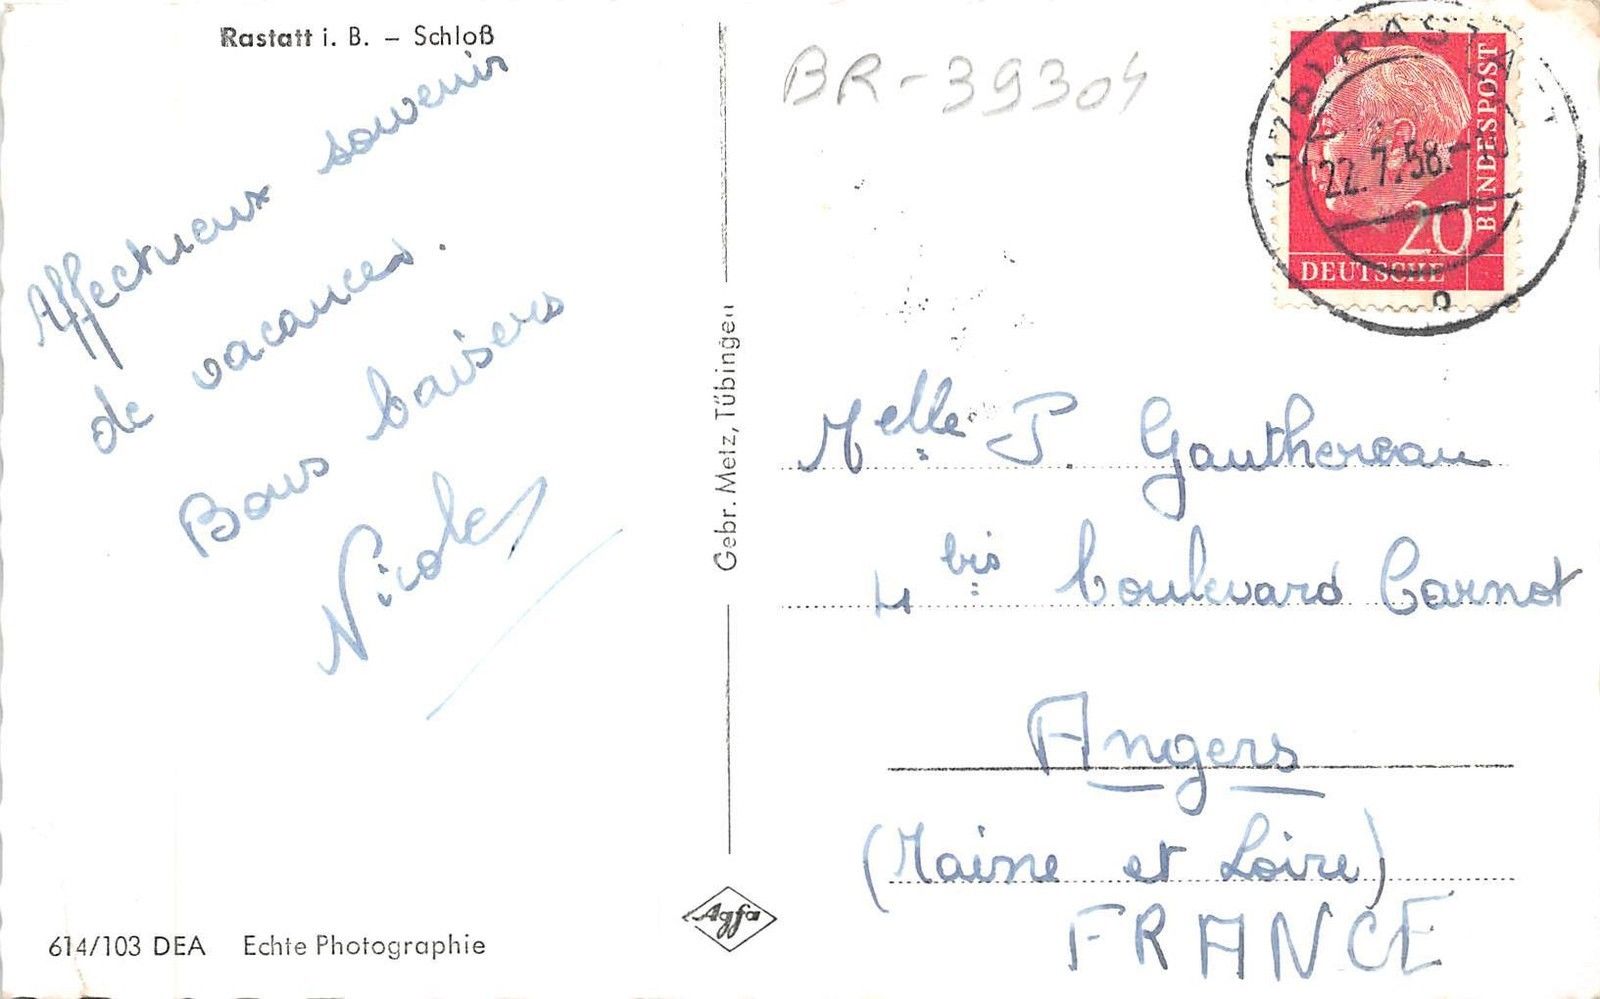 Rastatt i. B. – Schloß
Affectueux souvenir
de vacances.
Bons baisers
Nicole
614/103 DEA Echte Photographie
Gebr. Metz, Tübingen
Agfa
BR-39304
22.7.58.
20
DEUTSCHE
BUNDESPOST
Melle P. Gauthereau
4 bis boulevard Carnot
Angers
(Maine et Loire)
FRANCE